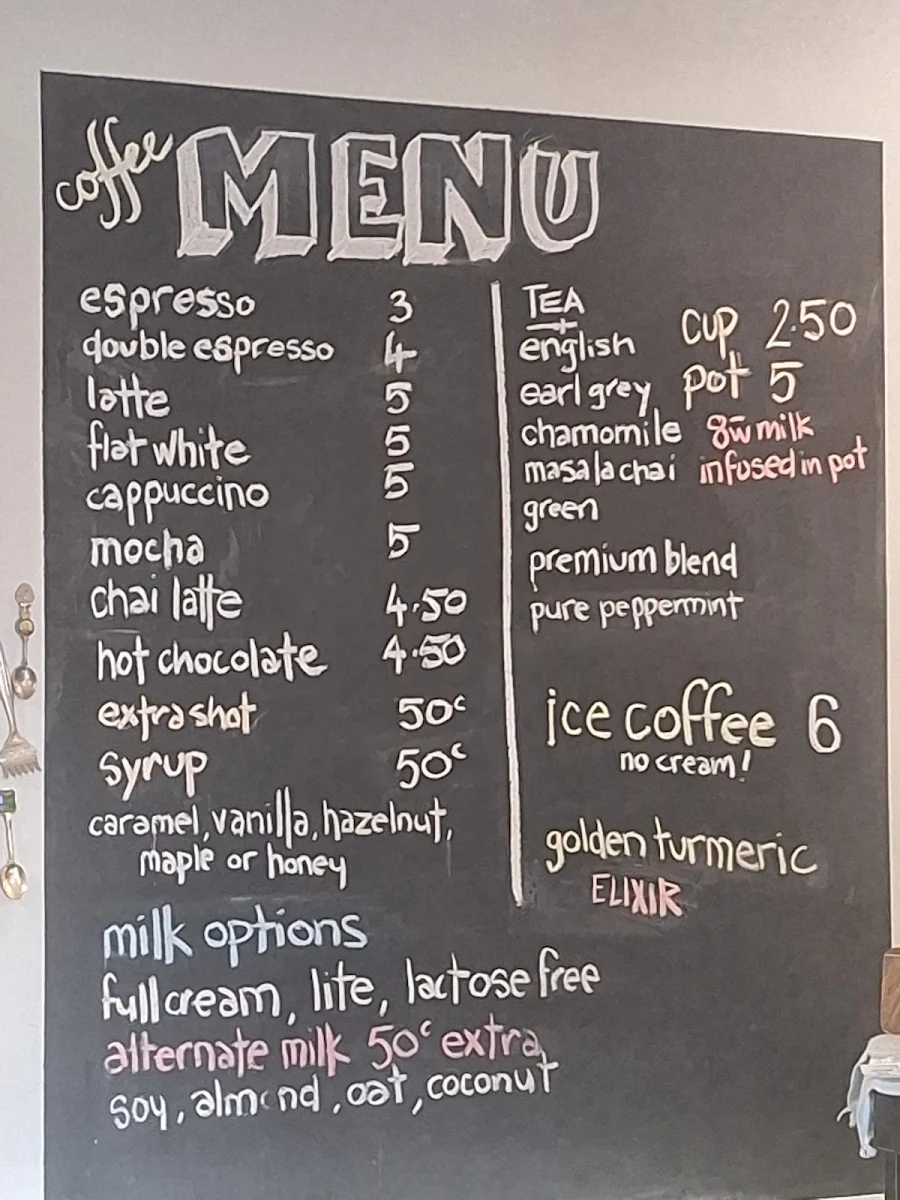 coffee MENU
espresso 3
double espresso 4
latte 5
flat white 5
cappuccino 5
mocha 5
chai latte 4.50
hot chocolate 4.50
extra shot 50c
syrup 50c
caramel, vanilla, hazelnut,
maple or honey
TEA
english
earl grey
cup 2.50
pot 5
chamomile
masala chai
8 w milk
infused in pot
green
premium blend
pure peppermint
ice coffee 6
no cream!
golden turmeric
ELIXIR
milk options
full cream, lite, lactose free
alternate milk 50c extra
soy, almond, oat, coconut